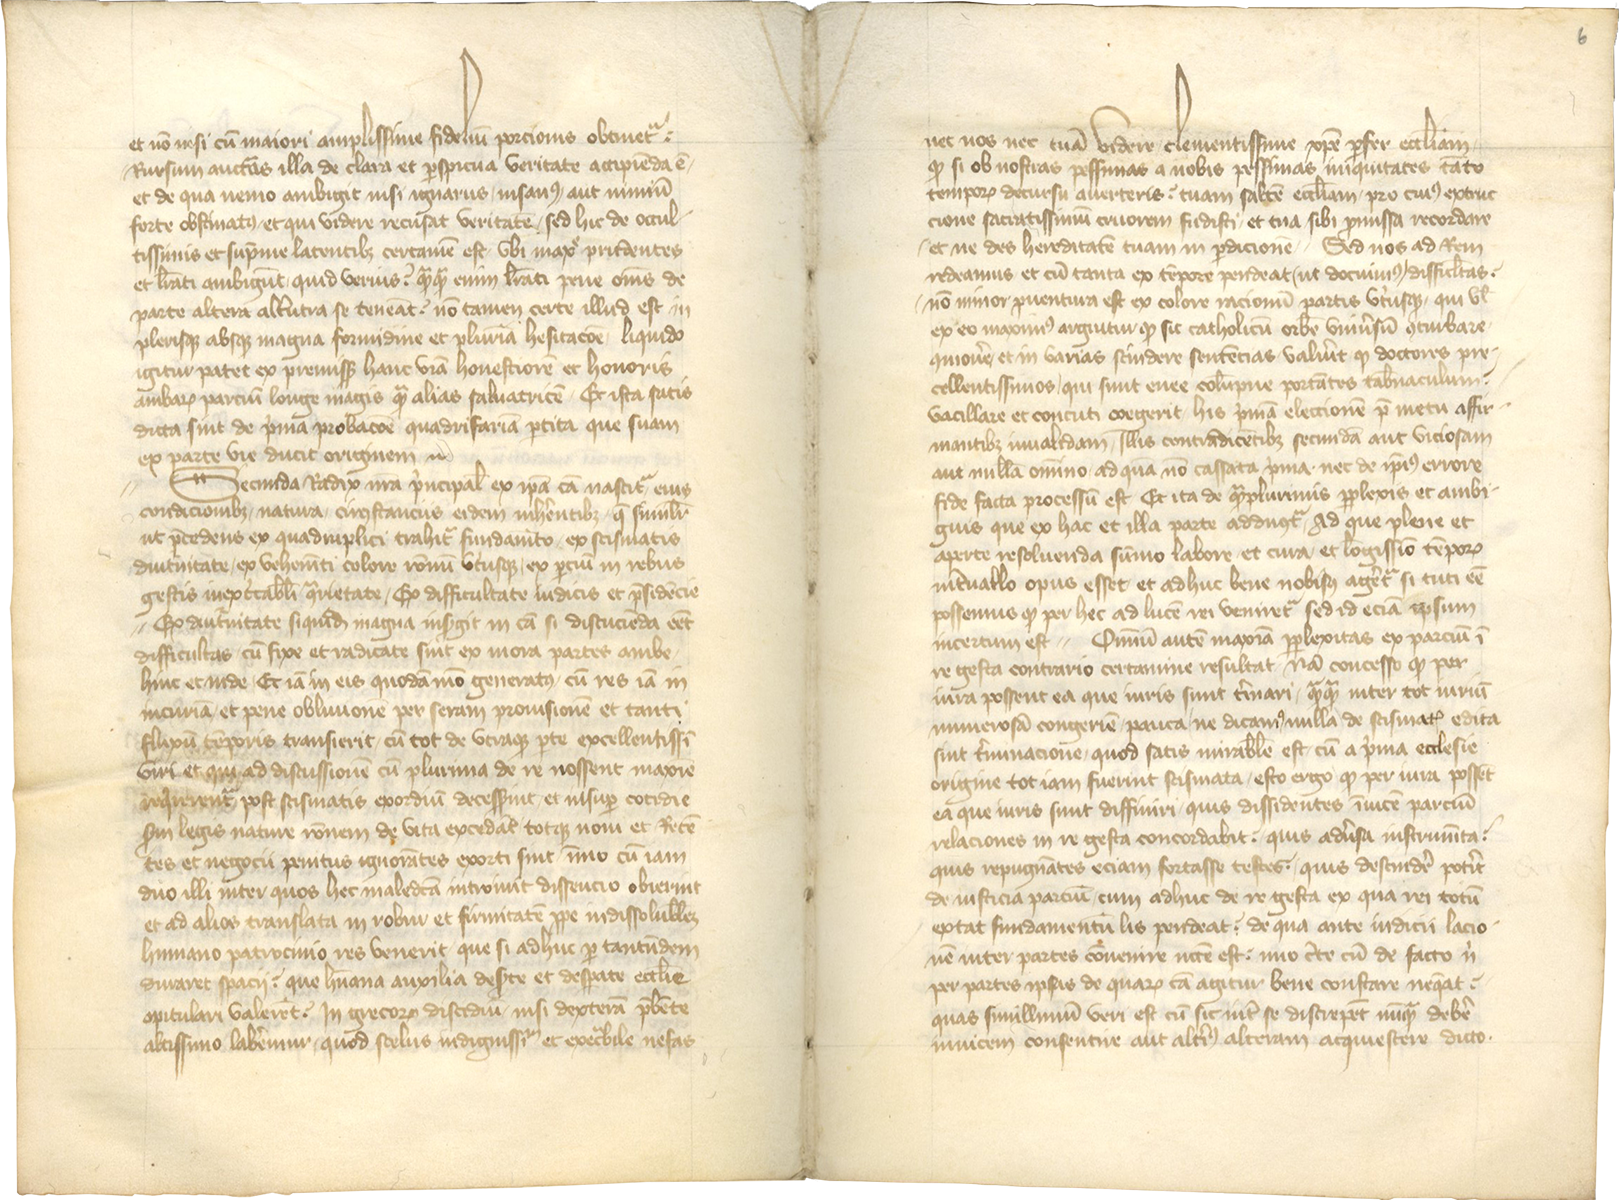 et nō nisi cū maiori amplissime fidelium porcionis obtinet᷑ ?
Rursum auctās illa de clara et p̱spicua veritate accipiēda ē
et de qua nemo ambigit nisi ignarus / insanꝰ / aut nimiū
forte obstinatꝰ / et qui videre recusat veritatē / sed hic de occul-
tissimis et sup̄me latentibꝫ certamē est / vbi maxᵉ prudentes
et lr̄ati ambigūt / quid verius ? qᷓꝙᷓ enim lr̄ati pene om̄s de
parte altera alt̄utra se teneāt ? nō tamen certe illud est in
plerisqꝫ absqꝫ magna formidine et plurīa hesitacōe / liquido
igitur patet ex premissꝭ hanc viā honestiorē et honoris
ambarꝝ parciū longe magis qᷓ alias saluatricē / Et ista satis
dicta sint de p̄ma probacōe quadrifariā p̱tita que suam
ex parte vie ducit originem
Secunda Radix nr̄a p̄ncipal̄ ex ip̄a cā nascit᷑ / eius
condicionibꝫ / natura / circūstanciis eidem inhēntibꝫ / q̄ simil̄r
ut p̄cedens ex quadruplici trahit᷑ fundam̄to / ex scismatis
diuturnitate / ex vehem̄ti colore rōnū vtriusqꝫ / ex p̱ciū in rebus
gestis inexp̱cabl̄i q̄rietate / Ex difficultate iudicis et p̄sidencie
Ex diuturnitate siquidē magna insurgit in cā si discucieda eēt
difficultas / cū fixe et radicate sint ex mora partes ambe /
hinc et inde / Et iā in eis quodāmō generatꝰ / cū res iā in
incuriā / et pene obliuionē per seram prouisionē et tanti
fluxū tēporis transierit / cū tot de vtraqꝫ p̱te excellentissī
viri et qui ad discussionē cū plurima de re nossent maxīe
requirerent᷑ / post scismatis exordiū decesserint / et insup̱ cotidie
s̄m legis nature rōnem de vita excedāt / totqꝫ noui et Recē-
tes et negocii penitus ignorātes exorti sint / immo cū iam
duo illi inter quos hec maledcā introiuit dissencio obierint
et ad alios translata in robur et firmitatē p̱pe indissolubilē
humano patrocinio res venerit / que si adhuc p̱ tantūdem
duraret spacij ? que hūana auxilia des̄te et desp̱ate eccl̄ie
opitulari valerēt ? In grecorꝝ discidiū / nisi dexterā p̄bēte
altissimo labemur / quod scelus indignissiᵐ et execrabile nefas
6
nec nos nec tuā videre clementissime xp̄e p̱fer eccl̄iam
qꝫ si ob nostras pessimas a nobis pessimas iniquitates tāto
temporꝝ decursu auerteris ? tuam saltē eccl̄iam / pro cuiꝰ extruc
cione sacratissimū cruorem fudisti / et tua sibi p̄missa recordare
et ne des hereditatē tuam in p̱dicionē // Sed nos ad Rem
redeamus et cū tanta ex tēpore pendeat / ut docuimꝰ / difficultas ?
nō minor p̱uentura est ex colore racionū partis vtriusqꝫ / qui vl̄
ex eo maximꝰ arguitur qꝫ sic catholicū orbē vniūsū ꝯturbare
ꝯmouē / et in varias scindere sentēcias / valuit qꝫ doctores pre-
cellentissimos / qui sunt enee columpne portātes tab̄naculum ?
vacillare et concuti coegerit / his p̄mā eleccionē p̱ metu affir-
mantibꝫ inualidam / Illis contradicētibꝫ secundā aut viciosam
aut nullā om̄ino / ad quā nō cassata p̄ma / nec de ip̄iꝰ errore
fide facta processū est / Et ita de qᷓplurimis p̱plexis et ambi-
guis que ex hac et illa parte adducūt᷑ / Ad que plene et
aperte resoluenda sūmo labore et cura / et longissīo tēporꝝ
int̄uallo opus esset / et adhuc bene nobiscū ageret᷑ si tuti eē
possemus qꝫ per hec ad lucē rei veniret᷑ / sed id eciā ipsum
incertum est // Omniū autē maxīa p̱plexitas ex parciū ī
re gesta contrario certamine resultat / Nā concesso qꝫ per
iura possent ea que iuris sunt t̄minari / qᷓꝙᷓ inter tot iuriū
numerosā congeriē / pauca / ne dicamꝰ nulla de scismatꝭ edita
sint t̄minacione / quod satis mirabl̄e est / cū a p̄ma ecclesie
origine tot iam fuerint scismata / esto ergo qꝫ per iura possēt
ea que iuris sunt diffiniri / quis dissidentes inuicē parciū
relaciones in re gesta concordabit ? quis aduersa instrum̄ta ?
quis repugnātes eciam fortasse testes ? quis descinder̄ poterit
de iusticia parciū / cum adhuc de re gesta ex qua rei totū
extat fundamentū lis pendeat ? de qua ante iudicii lacio-
nē inter partes cōuenire ncē est ? immo c̄te cū de facto n̄
per partes ipsas de quarꝝ cā agitur bene constare neq̄at ?
quas simillimū veri est cū sic int̄ se discrepēt nūqᷓ deb̄e
inuicem consentire aut alt̄iꝰ alteram acquiescere dicto .